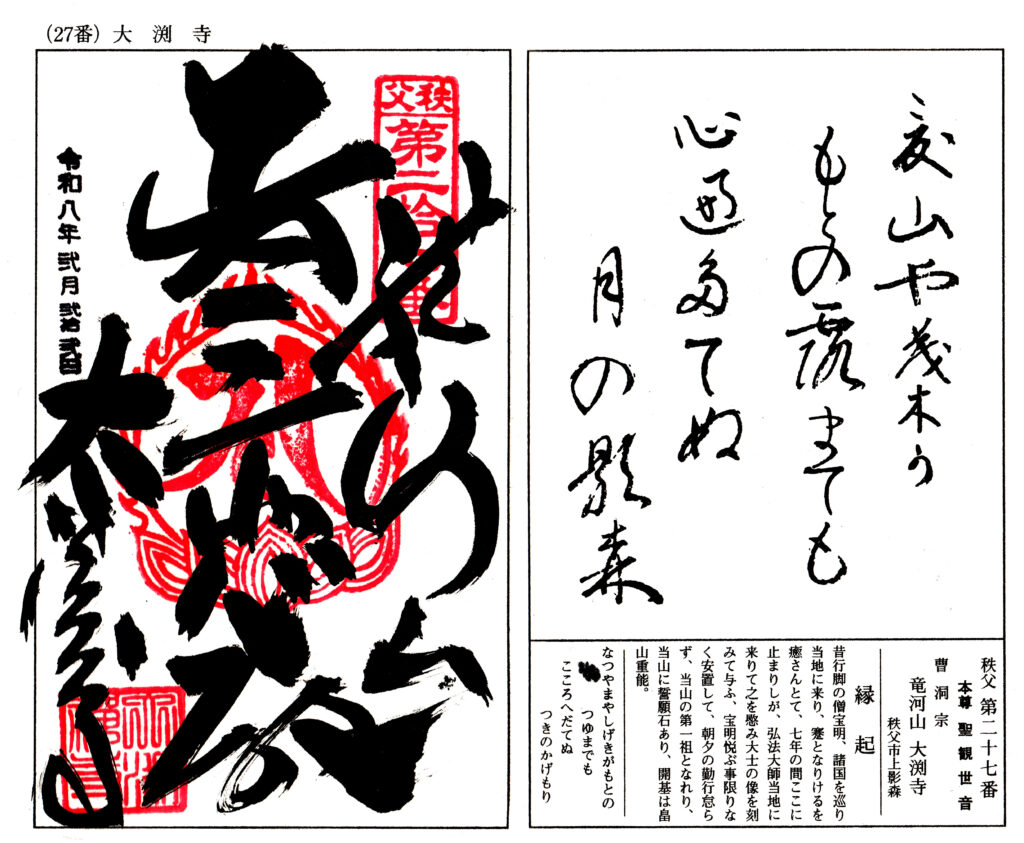 （27番）大渕寺
秩父
第二拾
令和八年 弐月 弐拾弐日
大渕寺
夏山や茂木か
もとの露まても
心遍多てぬ
月の影森
秩父 第二十七番
本尊 聖観世音
曹洞宗
竜河山 大渕寺
秩父市上影森
縁起
昔行脚の僧宝明、諸国を巡り
当地に来り、蹇となりけるを
癒さんとて、七年の間ここに
止まりしが、弘法大師当地に
来りて之を愍み大士の像を刻
みて与ふ、宝明悦ぶ事限りな
く安置して、朝夕の勤行怠ら
ず、当山の第一祖となれり、
当山に誓願石あり、開基は畠
山重能。
なつやまやしげきがもとの
つゆまでも
こころへだてぬ
つきのかげもり